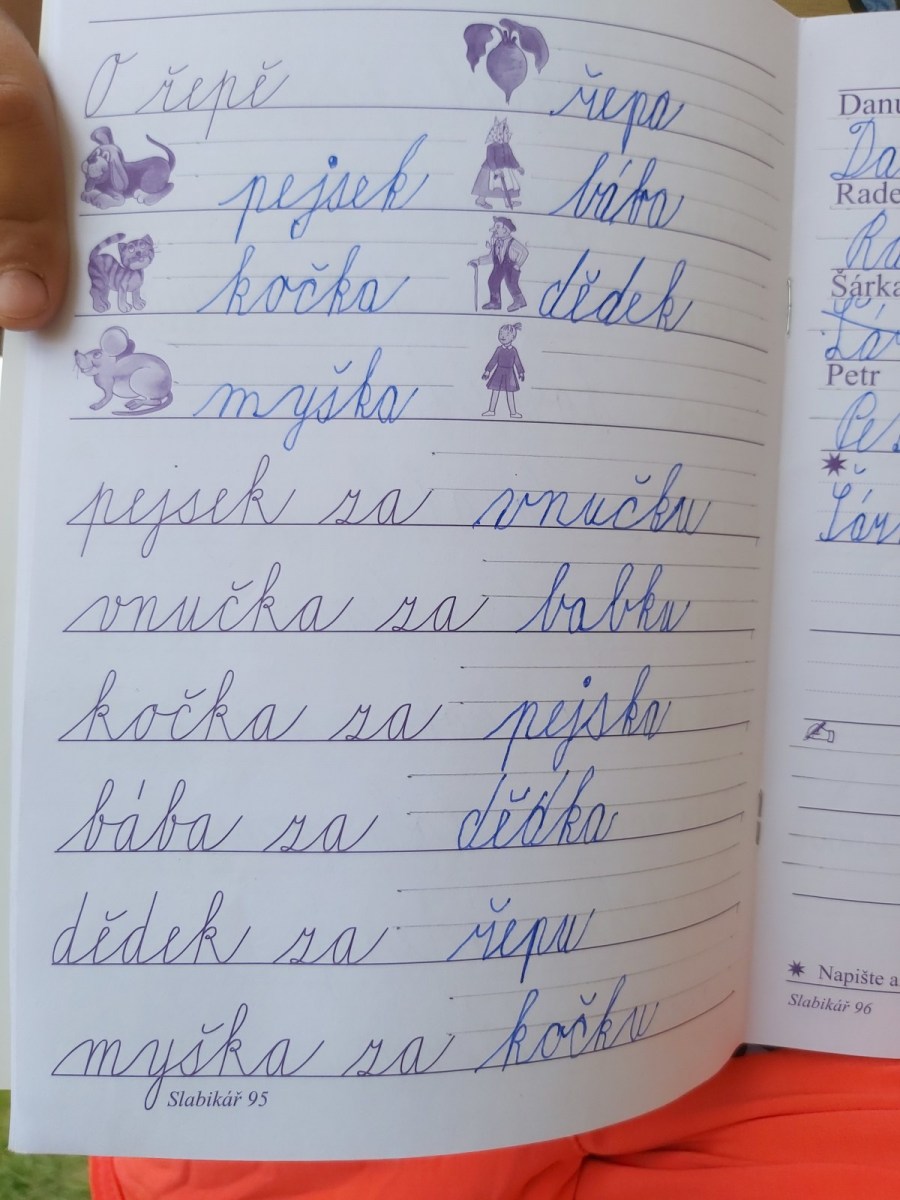 O řepě řepa
pejsek bába
kočka dědek
myška
pejsek za vnučku
vnučka za babku
kočka za pejska
bába za dědka
dědek za řepu
myška za kočku
Slabikář 95
Danu
Da
Rade
Ra
Šárka
Šár
Petr
Pe
Šár
Napište a
Slabikář 96